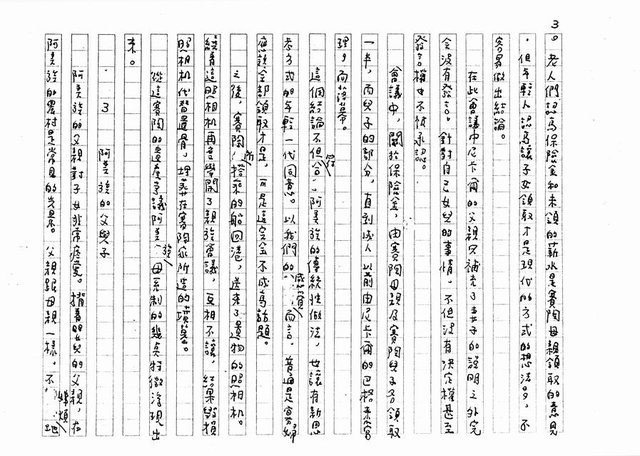 3
。老人們認為保險金和未領的薪水是賽陶母親領取的意見
，但年輕人認為讓子女領取才是現代的方式的想法，不
容易做出結論。
在此會議中尼卡爾的父親只補充了妻子的說明之外完
全沒有發言。針對自己女兒的事情，不但沒有決定權甚至
發言權也不被承認。
會議中，關於保險金，由賽陶母親及賽陶兒子各領取
一半，而兒子的部分，直到成人以前由尼卡爾的巴格來管
理，而落幕。
這個結論不但符合阿美族的傳統性做法，也讓有新思
考方式的年輕一代同意。以我們的感覺而言，普通是寡婦
應該全部領取才是，可是這完全不成為話題。
之後，賽陶所搭乘的船回港，送來了遺物的照相機。
繞著這照相機再召開了親族會議，互相不讓，結果毀損
照相機代替遺骨，埋葬在賽陶家所造的墳墓。
從這賽陶的遺產爭議阿美族母系制的幾真特徵浮現出
來。
3 阿美族的父與子
阿美族的父親對子女非常疼愛。揹著嬰兒的父親，在
阿美族的農村是常見的光景。父親跟母親一樣，不嫌煩地